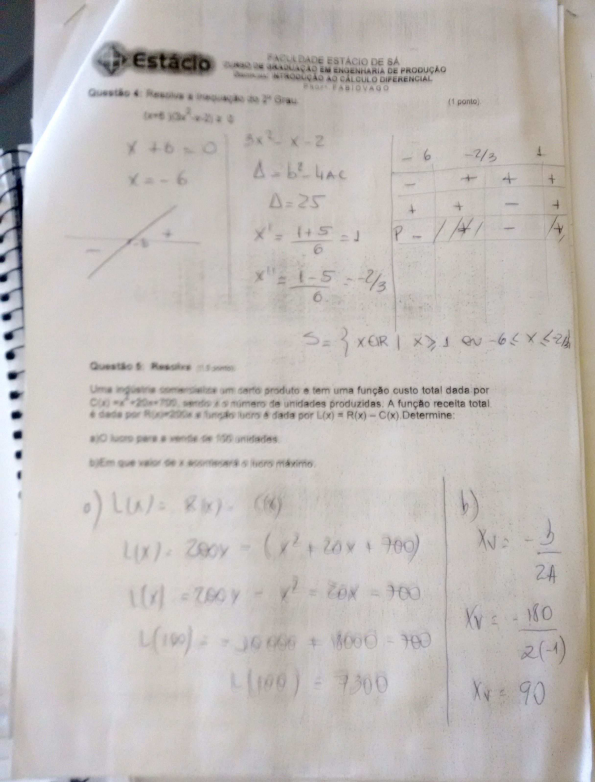 Estácio
FACULDADE ESTÁCIO DE SÁ
CURSO DE GRADUAÇÃO EM ENGENHARIA DE PRODUÇÃO
Disciplina: INTRODUÇÃO AO CÁLCULO DIFERENCIAL
Profº FABIOVAGO
Questão 4: Resolva a Inequação do 2º Grau. (1 ponto)
(x+6 )(3x²-x-2) ≥ 0
x + 6 = 0
x = - 6
- -6 +
3x² - x - 2
Δ = b² - 4AC
Δ = 25
x' = 1+5/6 = 1
x'' = 1-5/6 = -2/3
- 6 -2/3 1
- + + +
+ + - +
P - + - +
S = { x∈R | x ≥ 1 ou -6 ≤ x ≤ -2/3
Questão 5: Resolva (1,5 ponto)
Uma indústria comercializa um certo produto e tem uma função custo total dada por
C(x) =x²+20x+700, sendo x o número de unidades produzidas. A função receita total
é dada por R(x)=200x e função lucro é dada por L(x) = R(x) – C(x).Determine:
a)O lucro para a venda de 100 unidades.
b)Em que valor de x acontecerá o lucro máximo.
a) L(x) = R(x) - C(x)
L(x) = 200x - (x² + 20x + 700)
L(x) = 200x - x² - 20x - 700
L(100) = - 10000 + 18000 - 700
L(100) = 7300
b)
Xv = - b/2A
Xv = - 180/2(-1)
Xv = 90